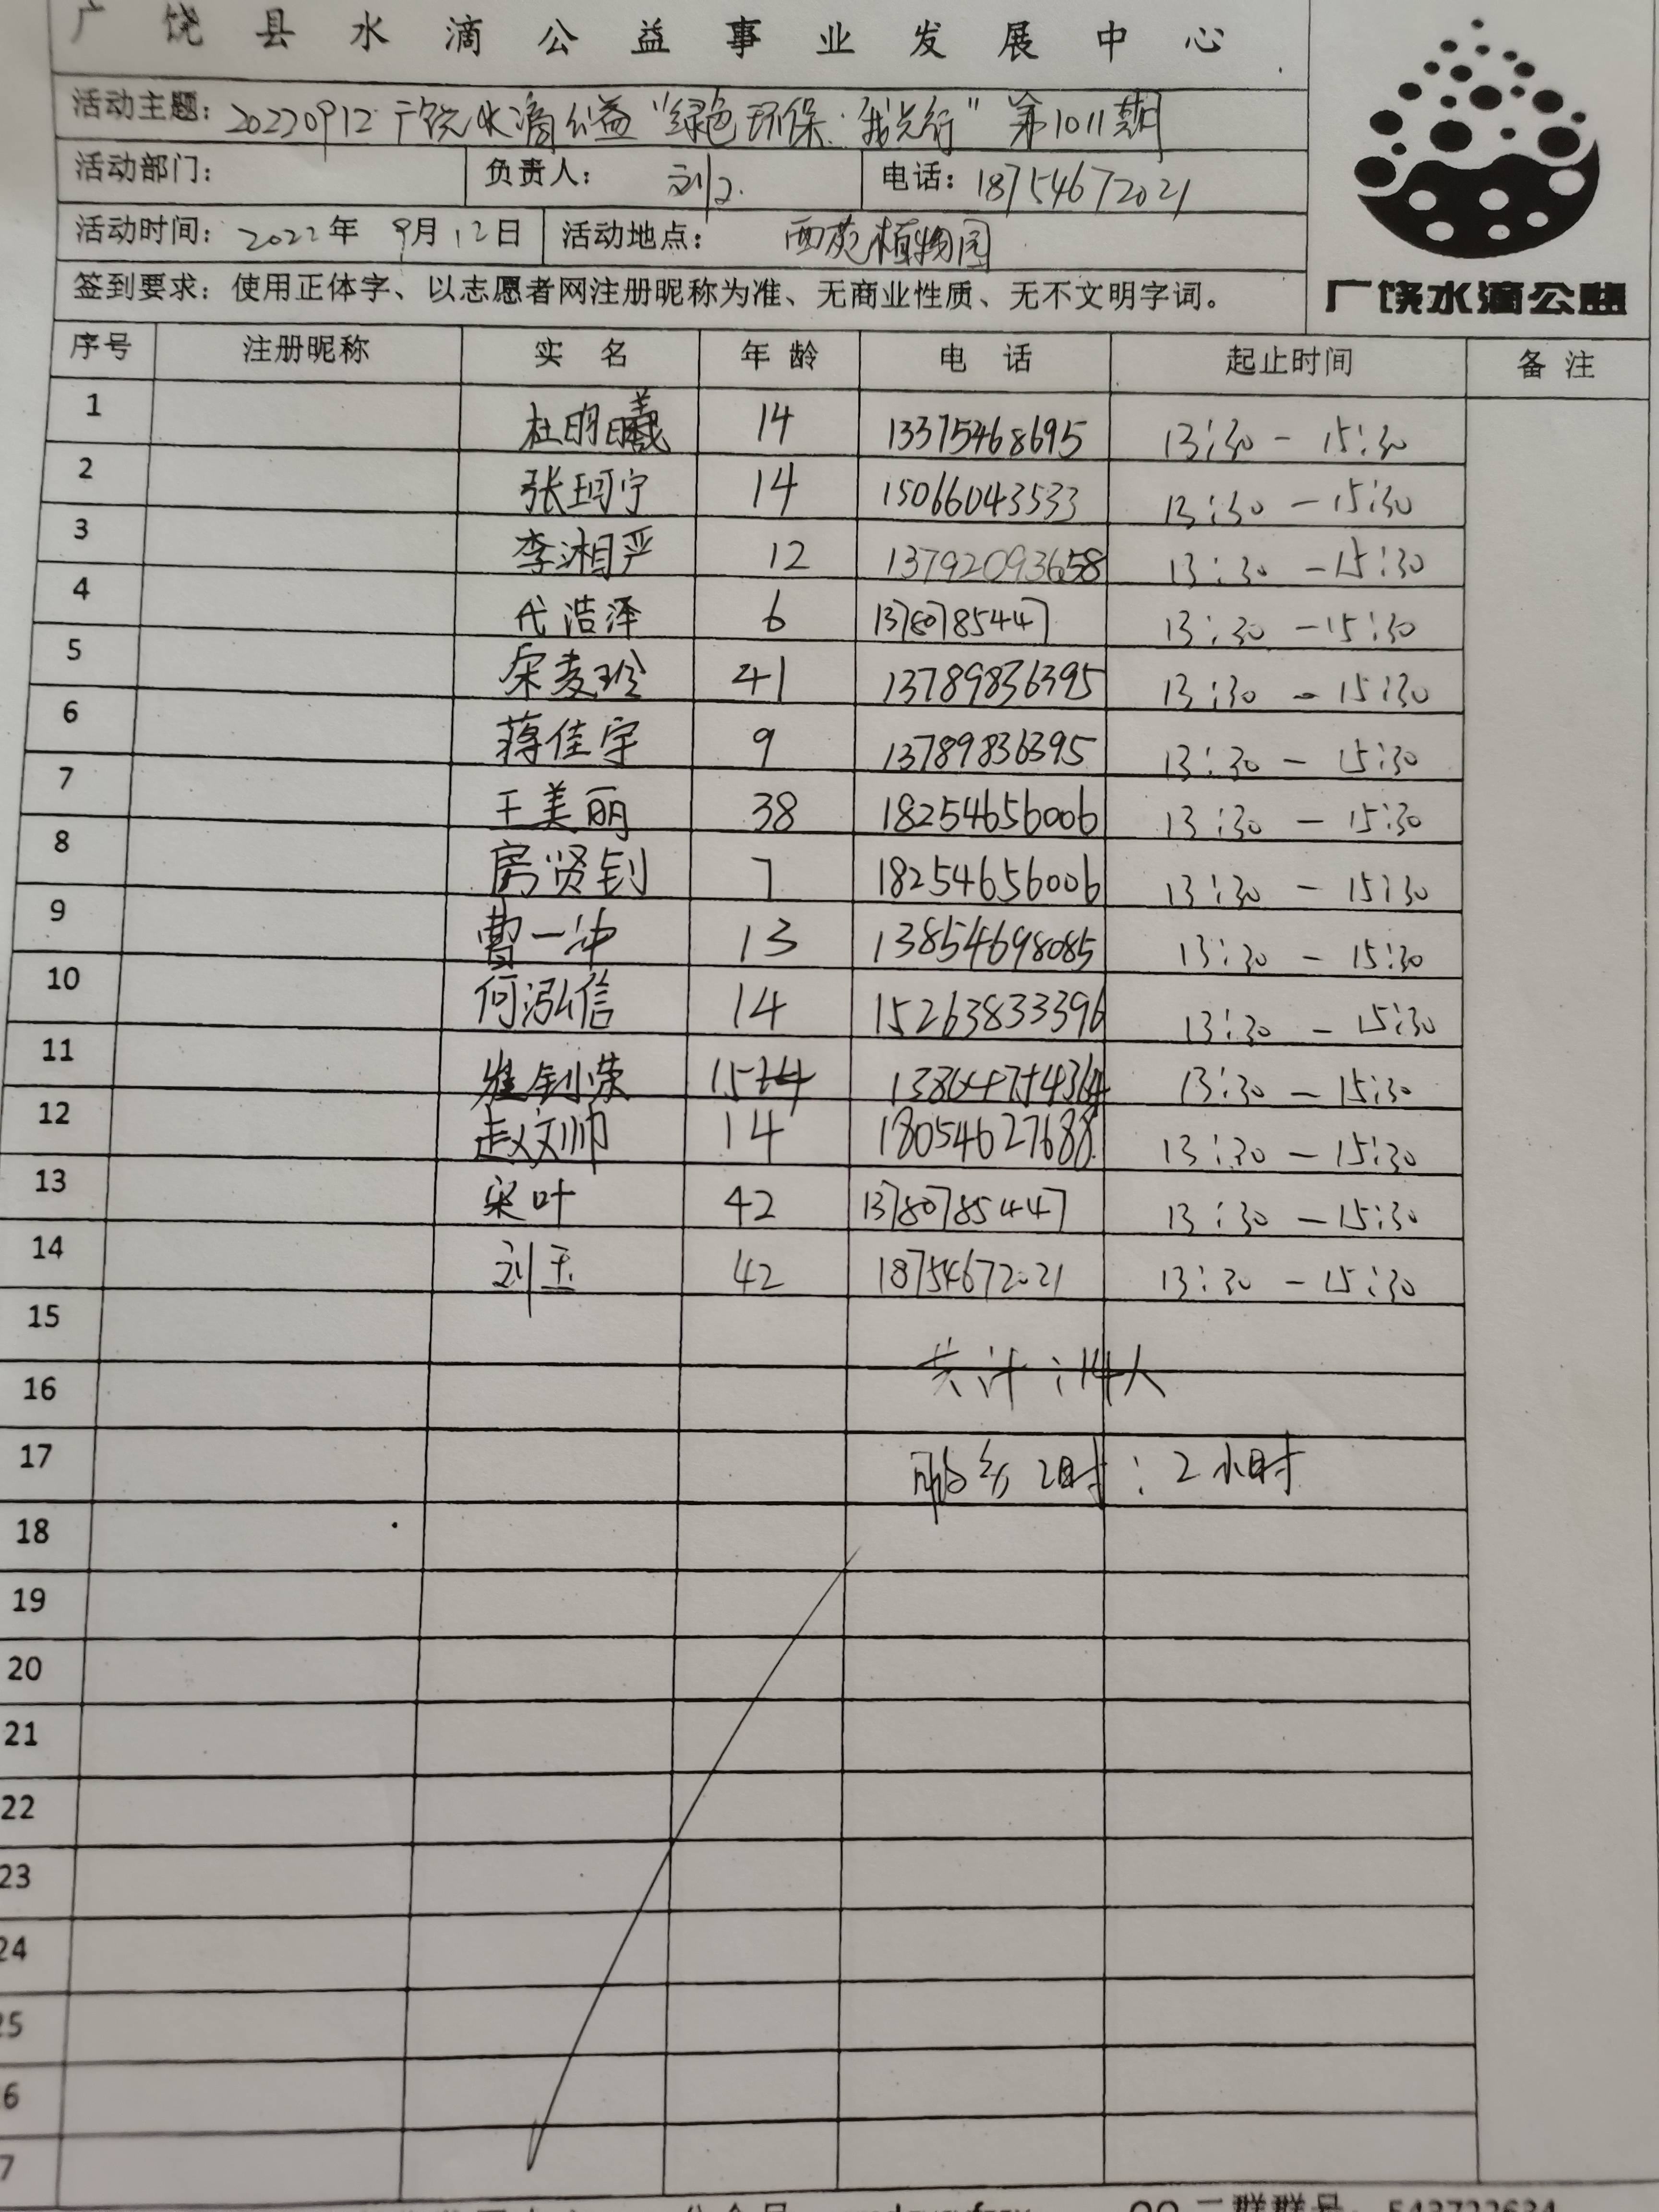 广饶县水滴公益事业发展中心
活动主题：20220912广饶水滴公益“绿色环保·我先行”第1011期
活动部门： 负责人： 刘 电话：18754672021
活动时间：2022年 9月12日 活动地点： 西苑植物园
签到要求：使用正体字、以志愿者网注册昵称为准、无商业性质、无不文明字词。
广饶水滴公益
序号 注册昵称 实 名 年 龄 电 话 起止时间 备 注
1 杜明曦 14 13375468695 13:30-15:30
2 张珂宁 14 15066043533 13:30-15:30
3 李湘严 12 13792093658 13:30-15:30
4 代浩泽 6 13780785447 13:30-15:30
5 宋麦玲 41 13789836395 13:30-15:30
6 蒋佳宇 9 13789836395 13:30-15:30
7 王美丽 38 18254656006 13:30-15:30
8 房贤钊 7 18254656006 13:30-15:30
9 曹一冲 13 13854698085 13:30-15:30
10 何泓信 14 15263833396 13:30-15:30
11 钊荣 15 13:30-15:30
12 赵文帅 14 18054627688 13:30-15:30
13 宋叶 42 13780785447 13:30-15:30
14 刘玉 42 18754672021 13:30-15:30
15
共计：14人
16
17 服务工时：2小时
18
19
20
21
22
23
24
25
6
7